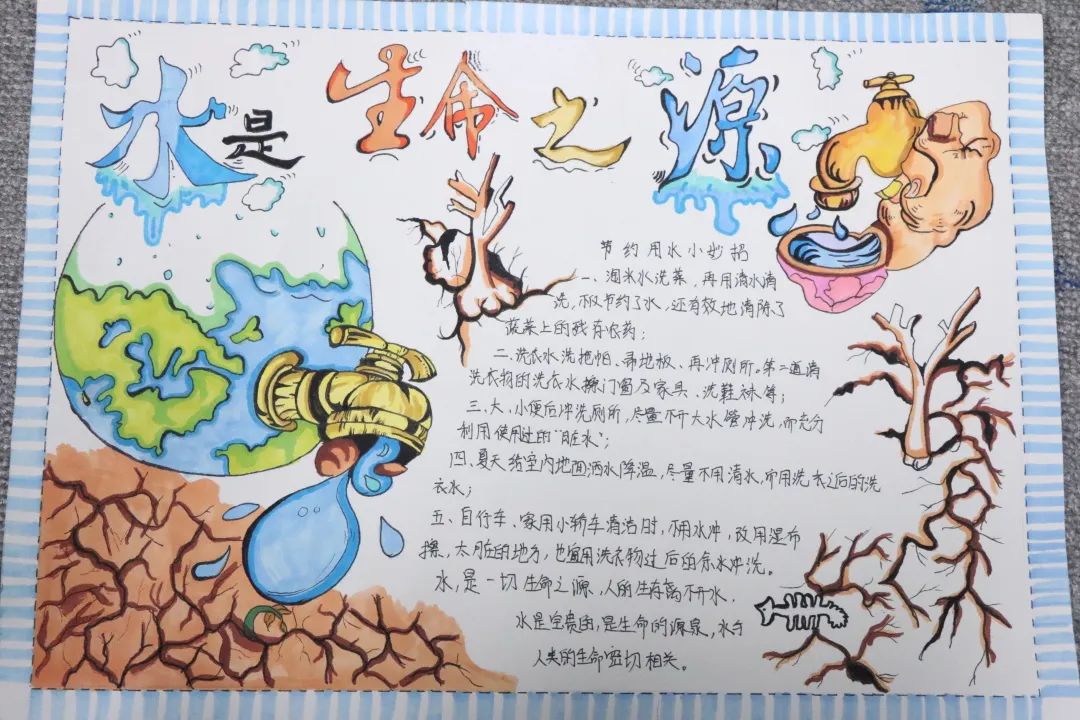 水是生命之源
节约用水小妙招
一、淘米水洗菜，再用清水清
洗，不仅节约了水，还有效地清除了
蔬菜上的残存农药；
二、洗衣水洗拖帕、帚地板、再冲厕所，第二道清
洗衣物的洗衣水擦门窗及家具、洗鞋袜等；
三、大、小便后冲洗厕所，尽量不开大水管冲洗，而充分
利用使用过的“脏水”；
四、夏天给室内地面洒水降温，尽量不用清水，而用洗衣之后的洗
衣水；
五、自行车、家用小轿车清洁时，不用水冲，改用湿布
擦，太脏的地方，也宜用洗衣物过后的余水冲洗。
水，是一切生命之源、人的生存离不开水，
水是宝贵的，是生命的源泉，水与
人类的生命密切相关。